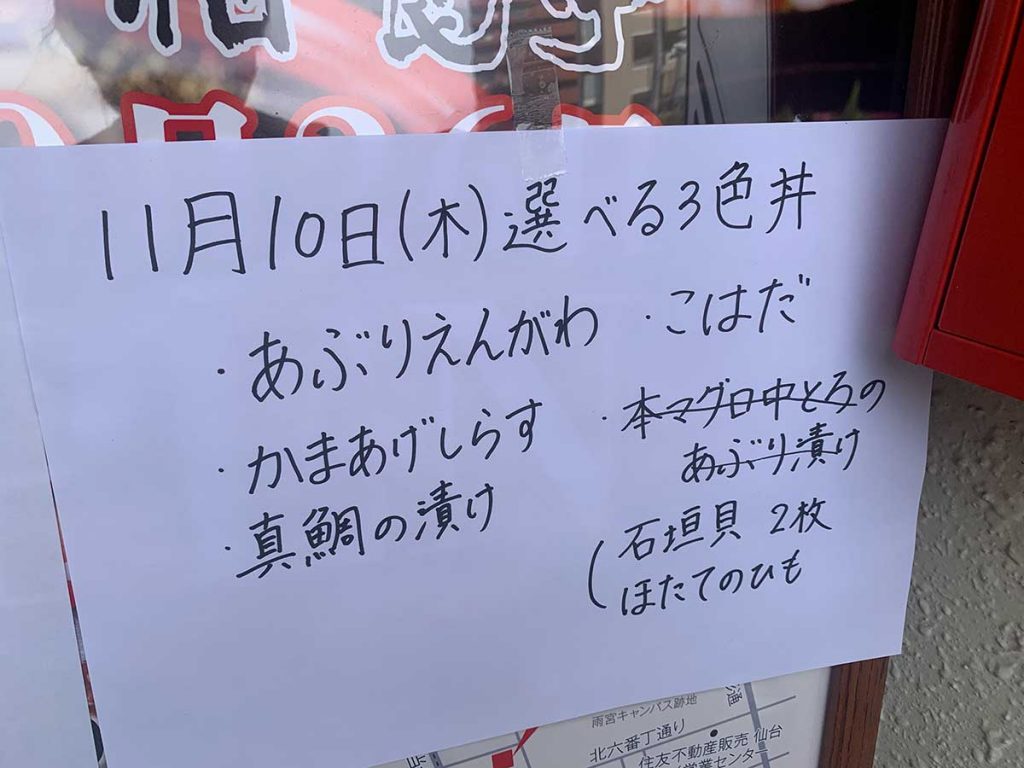 11月10日(木)選べる3色丼
・あぶりえんがわ
・かまあげしらす
・真鯛の漬け
・こはだ
・本マグロ中とろの
あぶり漬け
(石垣貝 2枚
ほたてのひも
雨宮キャンパス跡地
北六番丁通り
住友不動産販売 仙台
営業センター